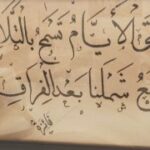 تى الأيَّامُ تَسْمَحُ بِالتَّلَا
مَعُ شَمْلَنَا بَعْدَ الفِرَاقِ